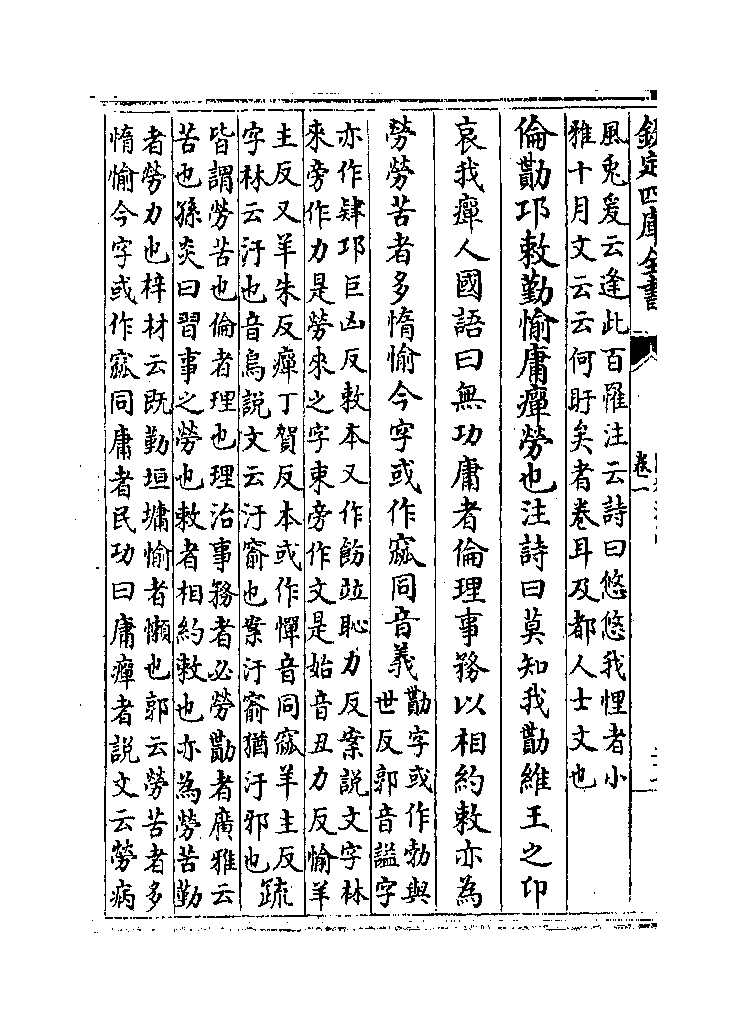 欽定四庫全書
卷一
風兎爰云逢此百罹注云詩曰悠悠我悝者小
雅十月文云云何盱矣者卷耳及都人士文也
倫勩卭敕勤愉庸癉勞也注詩曰莫知我勩維王之卭
哀我癉人國語曰無功庸者倫理事務以相約敕亦為
勞勞苦者多惰愉今字或作窳同音義
勩字或作勚與
世反郭音謚字
亦作肄卭巨凶反敕本又作飭竝恥力反案説文字林
來旁作力是勞來之字東旁作文是始音丑力反愉羊
主反又羊朱反癉丁賀反本或作憚音同窳羊主反
字林云汙也音烏説文云汙窬也案汙窬猶汙邪也
疏
皆謂勞苦也倫者理也理治事務者必勞勩者廣雅云
苦也孫炎曰習事之勞也敕者相約敕也亦為勞苦勤
者勞力也梓材云既勤垣墉愉者懶也郭云勞苦者多
惰愉今字或作窳同庸者民功曰庸癉者説文云勞病